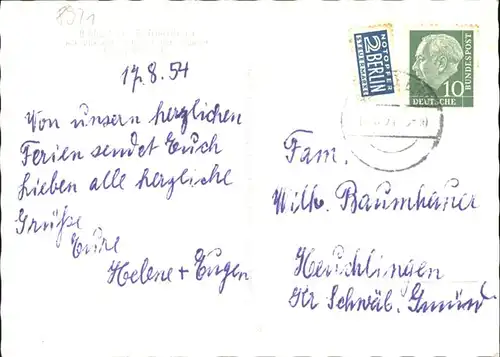 8971
17.8.54
Von unsern herzlichen
Ferien sendet Euch
Lieben alle herzliche
Grüße
Eure
Helene + Eugen
NOTOPFER
2 BERLIN
STEUERMARKE
10
DEUTSCHE
BUNDESPOST
Fam.
Wilh. Baumhauer
Heuchlingen
Kr Schwäb. Gmünd